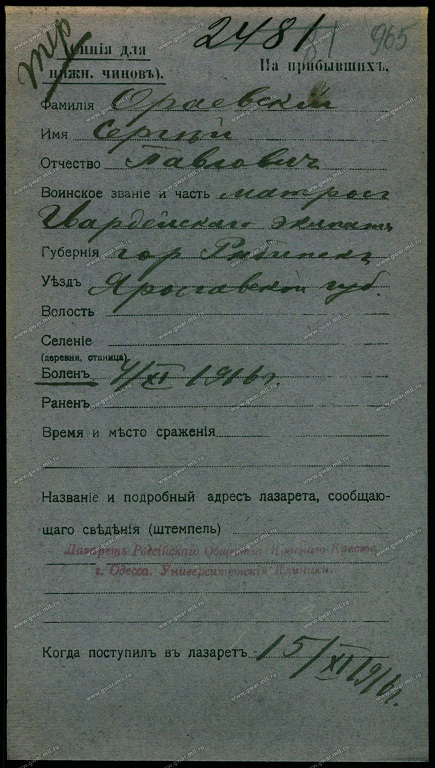 2481 81 965
...енія для
нижн. чиновъ).
На прибывшихъ.
Фамилія Ораевский
Имя Сергѣй
Отчество Павловичъ
Воинское званіе и часть матрос
Гвардейскаго экипажа
Губернія гор Рыбинскъ
Уѣздъ Ярославской губ.
Волость
Селеніе
(деревня, станица)
Боленъ 4/XI 1916 г.
Раненъ
Время и мѣсто сраженія
Названіе и подробный адресъ лазарета, сообщаю-
щаго свѣдѣнія (штемпель)
Лазаретъ Россійскаго Общества Краснаго Креста
г. Одесса. Университетскія Клиники.
Когда поступил въ лазаретъ 15/XI 1916 г.
www.gwar.mil.ru